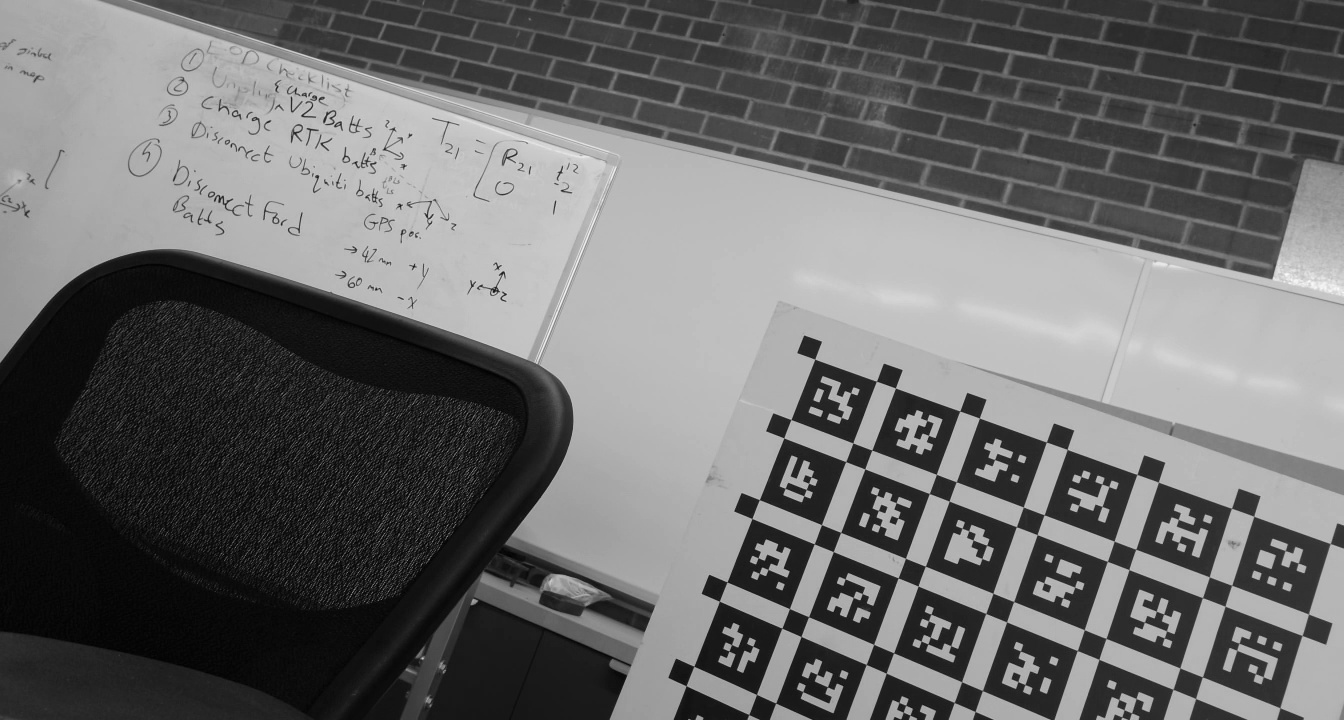 of gimbal
in map
EOD Checklist
① Unplug & charge V2 Batts
② Charge RTK batts
③ Disconnect Ubiquiti batts
④ Disconnect Ford
Batts
T21 = [ R21
0 1
GPS pos.
→ 42 mm + y
→ 60 mm - x
x
y z